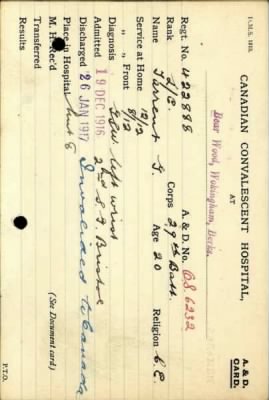 I.M.S. 1213.
A. & D. CARD.
CANADIAN CONVALESCENT HOSPITAL,
AT
Bear Wood, Wokingham, Berks.
Regt. No. 422888 A. & D. No. B.S. 6232
Rank L/C. Corps 29th Batt.
Name Tarrant G. Age 20 Religion C.E
Service at Home 12/12
„ „ Front 8/12
Diagnosis G.S.W. left wrist
Admitted 19 DEC 1916 2nd S. G. Bristol
Discharged 26 JAN 1917 Invalided to Canada
Place in Hospital Hut 6
M. H. Rec'd (See Document card)
Transferred
Results
P.T.O.